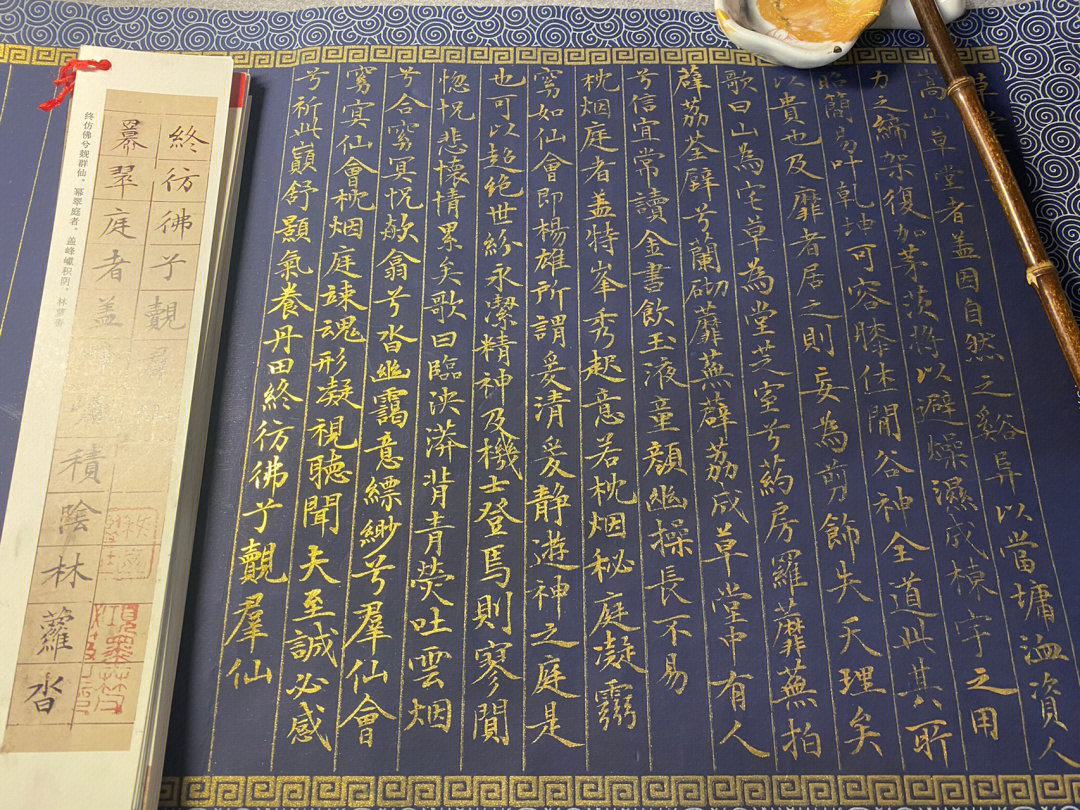 高山草堂者盖因自然之谿阜以當墉洫資人
力之締架復加茅茨將以避燥濕成棟宇之用
昭簡易叶乾坤可容膝休閒谷神全道此其所
以貴也及靡者居之則妄為剪飾失天理矣
歌曰山為宅草為堂芝室兮葯房羅蘼蕪拍
薜荔荃壁兮蘭砌蘼蕪薜荔成草堂中有人
兮信宜常讀金書飲玉液童顏幽操長不易
枕烟庭者盖特峯秀起意若枕烟秘庭凝
窈如仙會即楊雄所謂爰清爰静遊神之庭是
也可以超絶世紛永潔精神及機士登焉則寥閴
惚怳悲懷情累矣歌曰臨泱漭背青荧吐雲烟
兮合窈冥怳欻翕兮沓幽靄意縹緲兮羣仙會
窈冥仙會枕烟庭竦魂形凝視聽聞夫至誠必感
兮祈此巔舒顥氣養丹田終彷彿兮覿羣仙
終彷彿兮覿羣
冪翠庭者盖積陰林蘿沓
终仿佛兮觌群仙。幂翠庭者，盖峰巘积阴，林萝沓